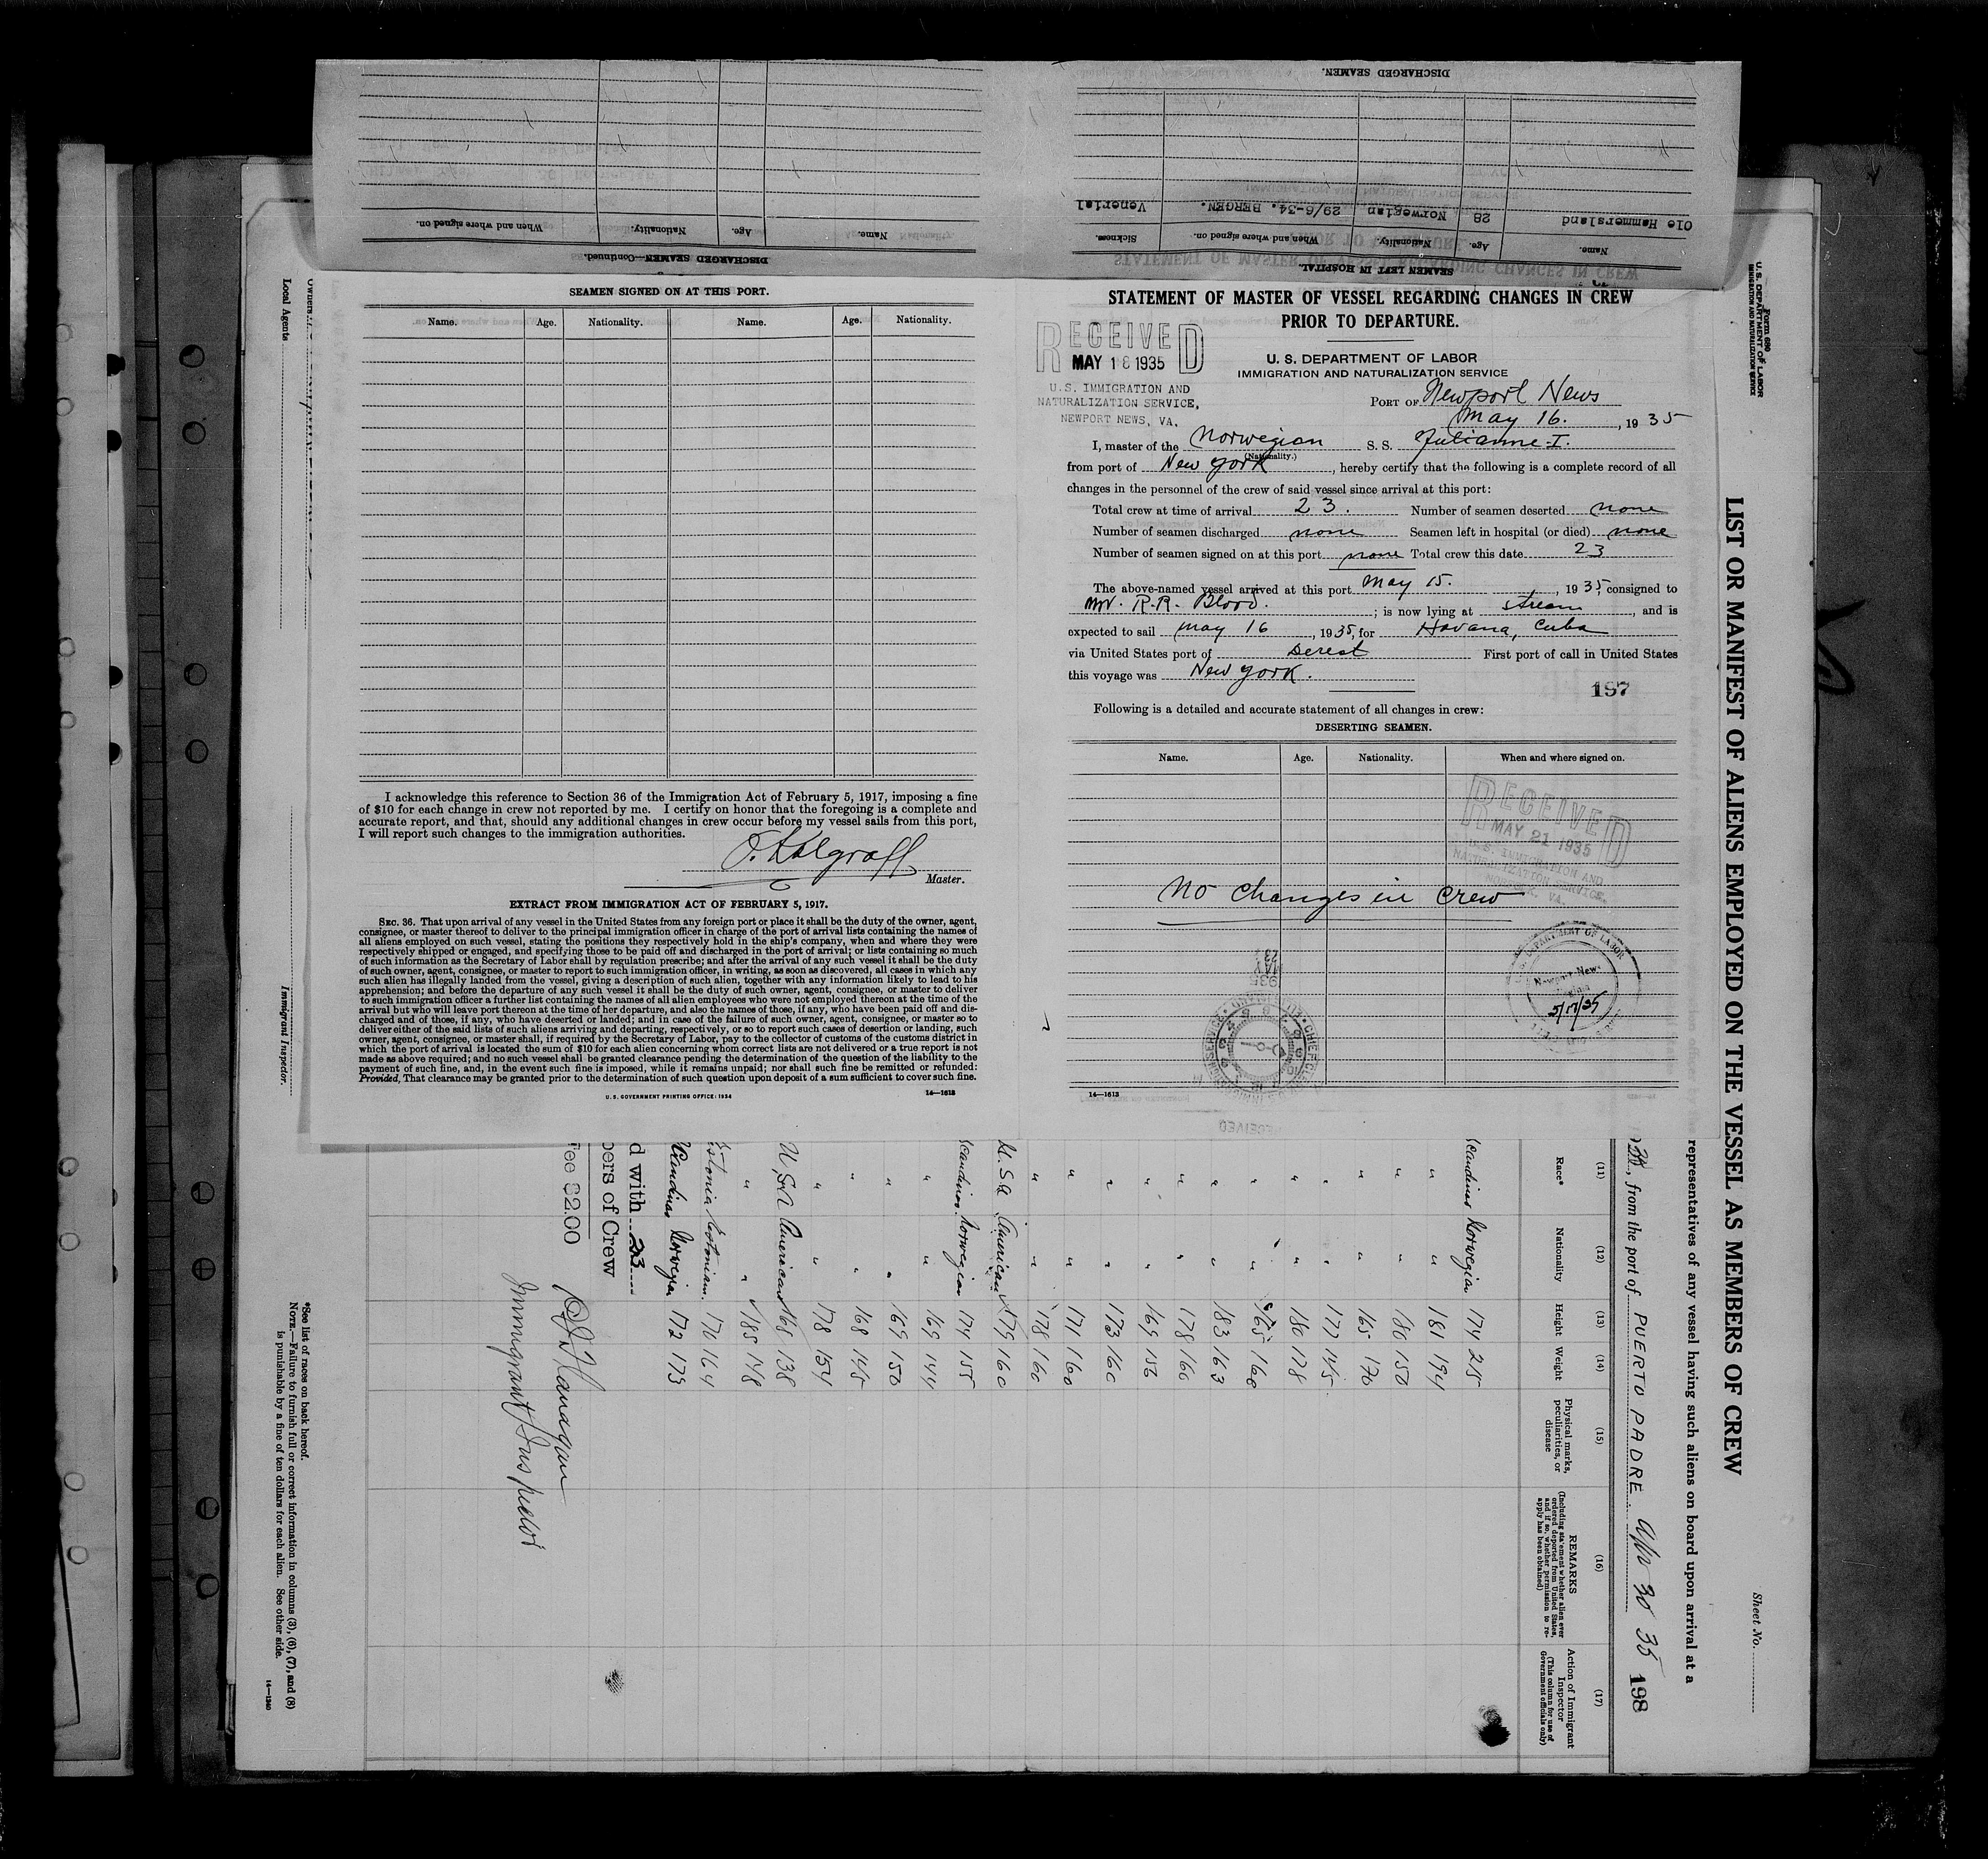 DISCHARGED SEAMEN.
SEAMEN LEFT IN HOSPITAL.
Name. Age. Nationality. When and where signed on. Sickness.
Ole Hammersland 28 Norwegian 29/6-34. BERGEN. Venerial
DISCHARGED SEAMEN—Continued.
Name. Age. Nationality. When and where signed on.
SEAMEN SIGNED ON AT THIS PORT.
Name. Age. Nationality. Name. Age. Nationality.
I acknowledge this reference to Section 36 of the Immigration Act of February 5, 1917, imposing a fine
of $10 for each change in crew not reported by me. I certify on honor that the foregoing is a complete and
accurate report, and that, should any additional changes in crew occur before my vessel sails from this port,
I will report such changes to the immigration authorities.
Master.
EXTRACT FROM IMMIGRATION ACT OF FEBRUARY 5, 1917.
SEC. 36. That upon arrival of any vessel in the United States from any foreign port or place it shall be the duty of the owner, agent,
consignee, or master thereof to deliver to the principal immigration officer in charge of the port of arrival lists containing the names of
all aliens employed on such vessel, stating the positions they respectively hold in the ship's company, when and where they were
respectively shipped or engaged, and specifying those to be paid off and discharged in the port of arrival; or lists containing so much
of such information as the Secretary of Labor shall by regulation prescribe; and after the arrival of any such vessel it shall be the duty
of such owner, agent, consignee, or master to report to such immigration officer, in writing, as soon as discovered, all cases in which any
such alien has illegally landed from the vessel, giving a description of such alien, together with any information likely to lead to his
apprehension; and before the departure of any such vessel it shall be the duty of such owner, agent, consignee, or master to deliver
to such immigration officer a further list containing the names of all alien employees who were not employed thereon at the time of the
arrival but who will leave port thereon at the time of her departure, and also the names of those, if any, who have been paid off and dis-
charged and of those, if any, who have deserted or landed; and in case of the failure of such owner, agent, consignee, or master so to
deliver either of the said lists of such aliens arriving and departing, respectively, or so to report such cases of desertion or landing, such
owner, agent, consignee, or master shall, if required by the Secretary of Labor, pay to the collector of customs of the customs district in
which the port of arrival is located the sum of $10 for each alien concerning whom correct lists are not delivered or a true report is not
made as above required; and no such vessel shall be granted clearance pending the determination of the question of the liability to the
payment of such fine, and, in the event such fine is imposed, while it remains unpaid; nor shall such fine be remitted or refunded:
Provided, That clearance may be granted prior to the determination of such question upon deposit of a sum sufficient to cover such fine.
U. S. GOVERNMENT PRINTING OFFICE: 1934
14—1613
STATEMENT OF MASTER OF VESSEL REGARDING CHANGES IN CREW
PRIOR TO DEPARTURE.
RECEIVED
MAY 18 1935
U.S. IMMIGRATION AND
NATURALIZATION SERVICE,
NEWPORT NEWS, VA.
U. S. DEPARTMENT OF LABOR
IMMIGRATION AND NATURALIZATION SERVICE
PORT OF Newport News
May 16., 1935
I, master of the Norwegian S. S. Julianne I.
(Nationality.)
from port of New York, hereby certify that the following is a complete record of all
changes in the personnel of the crew of said vessel since arrival at this port:
Total crew at time of arrival 23. Number of seamen deserted none
Number of seamen discharged none Seamen left in hospital (or died) none
Number of seamen signed on at this port none Total crew this date 23
The above-named vessel arrived at this port May 15., 1935, consigned to
Mr. R.R. Blood.; is now lying at stream, and is
expected to sail May 16, 1935, for Havana, Cuba
via United States port of Derect First port of call in United States
this voyage was New York.
197
Following is a detailed and accurate statement of all changes in crew:
DESERTING SEAMEN.
Name. Age. Nationality. When and where signed on.
RECEIVED
MAY 21 1935
U.S. IMMIGRATION AND
NATURALIZATION SERVICE,
NORFOLK, VA.
No changes in crew
5/17/35
14—1613
Form 680
U. S. DEPARTMENT OF LABOR
IMMIGRATION AND NATURALIZATION SERVICE
LIST OR MANIFEST OF ALIENS EMPLOYED ON THE VESSEL AS MEMBERS OF CREW
Sheet No.
representatives of any vessel having such aliens on board upon arrival at a
, from the port of PUERTO PADRE Apr 30 35 198
(11) (12) (13) (14) (15) (16) (17)
Race* Nationality Height Weight
Physical marks, peculiarities, or disease
REMARKS
(Including statement whether alien ever ordered deported from United States, and if so, whether permission to re-apply has been obtained)
Action of Immigrant Inspector
(This column for use of Government officials only)
Norwegian 174 215
" " 181 194
" " 180 150
" " 165 170
" " 177 145
" " 180 178
" " 165 160
" " 183 163
" " 178 160
" " 169 156
" " 173 160
" " 171 160
" " 178 160
U.S.A American 179 160
Norwegian 174 155
" " 169 144
" " 169 150
" " 168 145
" " 178 154
U.S.A American 168 138
" " 185 148
170 164
172 173
d with 23
bers of Crew
Fee $2.00
Immigrant Inspector
Owners
Local Agents
Immigrant Inspector.
*See list of races on back hereof.
NOTE.—Failure to furnish full or correct information in columns (3), (6), (7), and (8)
is punishable by a fine of ten dollars for each alien. See other side.
14—1240